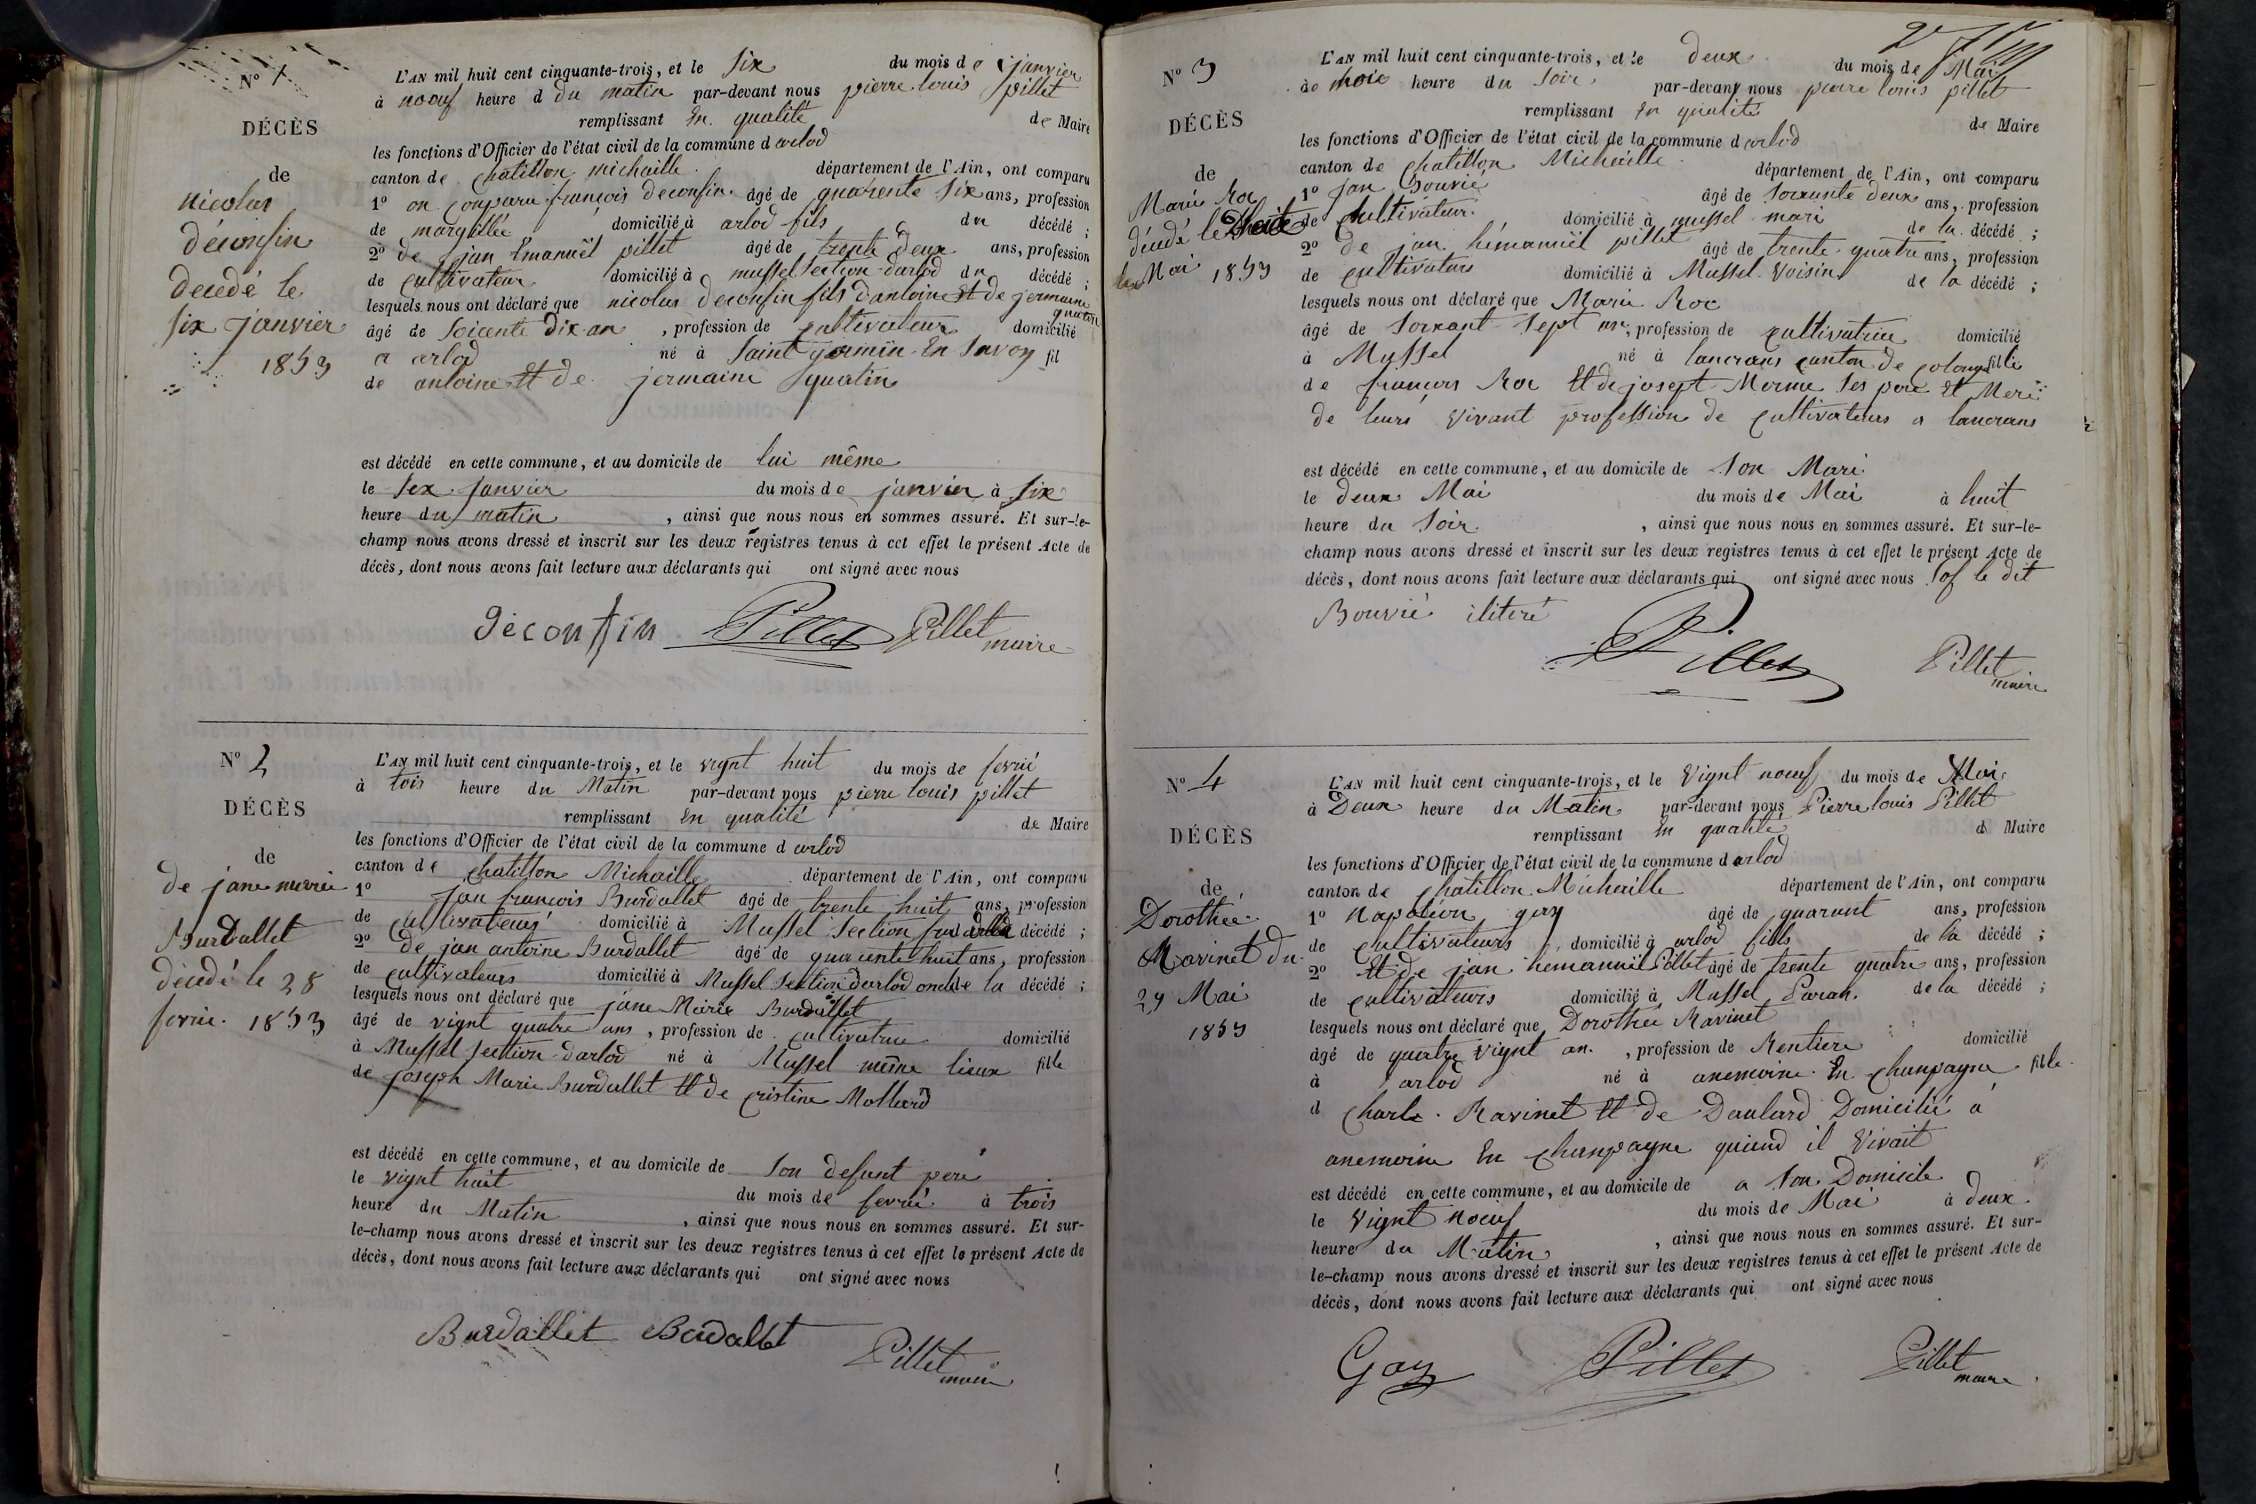 N° 1
DÉCÈS
de
nicolas
déconfin
decedé le
six janvier
1853
L'AN mil huit cent cinquante-trois, et le six du mois de janvier
à noeuf heure d du matin par-devant nous pierre louis pillet
remplissant en qualité de Maire
les fonctions d'Officier de l'état civil de la commune d arlod
canton de chatillon michaille département de l'Ain, ont comparu
1° on conparu françois deconfin âgé de quarente six ans, profession
de margillée domicilié à arlod fils du décédé ;
2° de jan Emanuël pillet âgé de trente deux ans, profession
de cultivateur domicilié à mussel section darlod du décédé ;
lesquels nous ont déclaré que nicolas deconfin fils dantoine et de jermaine quatin
âgé de soicente dix an , profession de cultivateur domicilié
a arlod né à Saint jermïn En Savoy fil
de antoine et de jermaine quatin
est décédé en cette commune, et au domicile de lui même
le six janvier du mois de janvier à six
heure du matin , ainsi que nous nous en sommes assuré. Et sur-le-
champ nous avons dressé et inscrit sur les deux registres tenus à cet effet le présent Acte de
décès, dont nous avons fait lecture aux déclarants qui ont signé avec nous
déconfin Pillet Pillet
maire
N° 2
DÉCÈS
de
de jane marie
Burdallet
décédé le 28
fevrié 1853
L'AN mil huit cent cinquante-trois, et le vignt huit du mois de fevrié
à tois heure du Matin par-devant nous pierre louis pillet
remplissant en qualité de Maire
les fonctions d'Officier de l'état civil de la commune d arlod
canton de chatillon Michaille département de l'Ain, ont comparu
1° jan françois Burdallet âgé de trente huit ans, profession
de cultivateurs domicilié à Mussel section décédé ;
2° de jan antoine Burdallet âgé de quarente huit ans, profession
de cultivateurs domicilié à Mussel section darlod oncle de la décédé ;
lesquels nous ont déclaré que jane Marie Burdallet
âgé de vignt quatre ans , profession de cultivatrice domicilié
à Mussel section darlod né à Mussel même lieux fille
de joseph Marie Burdallet et de cristine Molliard
est décédé en cette commune, et au domicile de son defunt peré
le vignt huit du mois de fevrié à trois
heure du Matin , ainsi que nous nous en sommes assuré. Et sur-
le-champ nous avons dressé et inscrit sur les deux registres tenus à cet effet le présent Acte de
décès, dont nous avons fait lecture aux déclarants qui ont signé avec nous
Burdallet Burdallet Pillet
maire
N° 3
DÉCÈS
de
Marie Roc
décédé le
Mai 1853
L'AN mil huit cent cinquante-trois, et le deux du mois de Mai
à heure du soir par-devant nous pierre louis pillet
remplissant en qualité de Maire
les fonctions d'Officier de l'état civil de la commune d arlod
canton de chatillon Michaille département de l'Ain, ont comparu
1° jan Bouvié âgé de soixante deux ans, profession
de cultivateur domicilié à mussel mari de la décédé ;
2° de jan hémanuël pillet âgé de trente quatre ans, profession
de cultivateurs domicilié à Mussel voisin de la décédé ;
lesquels nous ont déclaré que Marie Roc
âgé de soixant sept an , profession de cultivatrice domicilié
à Mussel né à lancrans canton de colonge fille
de françois Roc et de josept Mermé ses pere et Meré
de leurs vivant profession de cultivateurs a lancrans
est décédé en cette commune, et au domicile de son Mari
le deux Mai du mois de Mai à huit
heure du soir , ainsi que nous nous en sommes assuré. Et sur-le-
champ nous avons dressé et inscrit sur les deux registres tenus à cet effet le présent Acte de
décès, dont nous avons fait lecture aux déclarants qui ont signé avec nous sof le dit
Bouvié iliteré
Pillet Pillet
maire
N° 4
DÉCÈS
de
Dorothée
Ravinet du
29 Mai
1853
L'AN mil huit cent cinquante-trois, et le vignt noeuf du mois de Mai
à Deux heure du Matin par-devant nous Pierre louis Pillet
remplissant en qualité d Maire
les fonctions d'Officier de l'état civil de la commune d arlod
canton de chatillon Michaille département de l'Ain, ont comparu
1° Napoléon gay âgé de quarant ans, profession
de cultivateurs domicilié à arlod fills de la décédé ;
2° et de jan hemanuel Pillet âgé de trente quatre ans, profession
de cultivateurs domicilié à Mussel Paran de la décédé ;
lesquels nous ont déclaré que Dorothée Ravinet
âgé de quatre vignt an , profession de Rentiere domicilié
à arlod né à anemoine En chanpagne fille
d Charle Ravinet et de Daulard Domicilié a
anemoine En chanpagne quand il vivait
est décédé en cette commune, et au domicile de a son Domicile
le vignt noeuf du mois de Mai à deux
heure du Matin , ainsi que nous nous en sommes assuré. Et sur-
le-champ nous avons dressé et inscrit sur les deux registres tenus à cet effet le présent Acte de
décès, dont nous avons fait lecture aux déclarants qui ont signé avec nous
Gay Pillet Pillet
maire